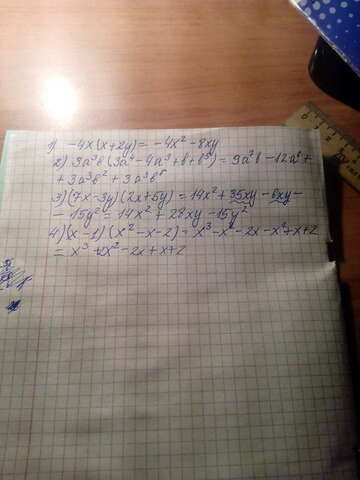 1) -4x(x+2y)= -4x²-8xy
2) 3a³b(3a⁴-4a³+b+b⁵)=9a⁷b-12a⁶+
+3a³b²+3a³b⁶
3)(7x-3y)(2x+5y)=14x²+35xy-6xy-
-15y²=14x²+28xy-15y²
4)(x-1)(x²-x-2)= x³-x²-2x-x²+x+2
= x³+x²-2x+x+2